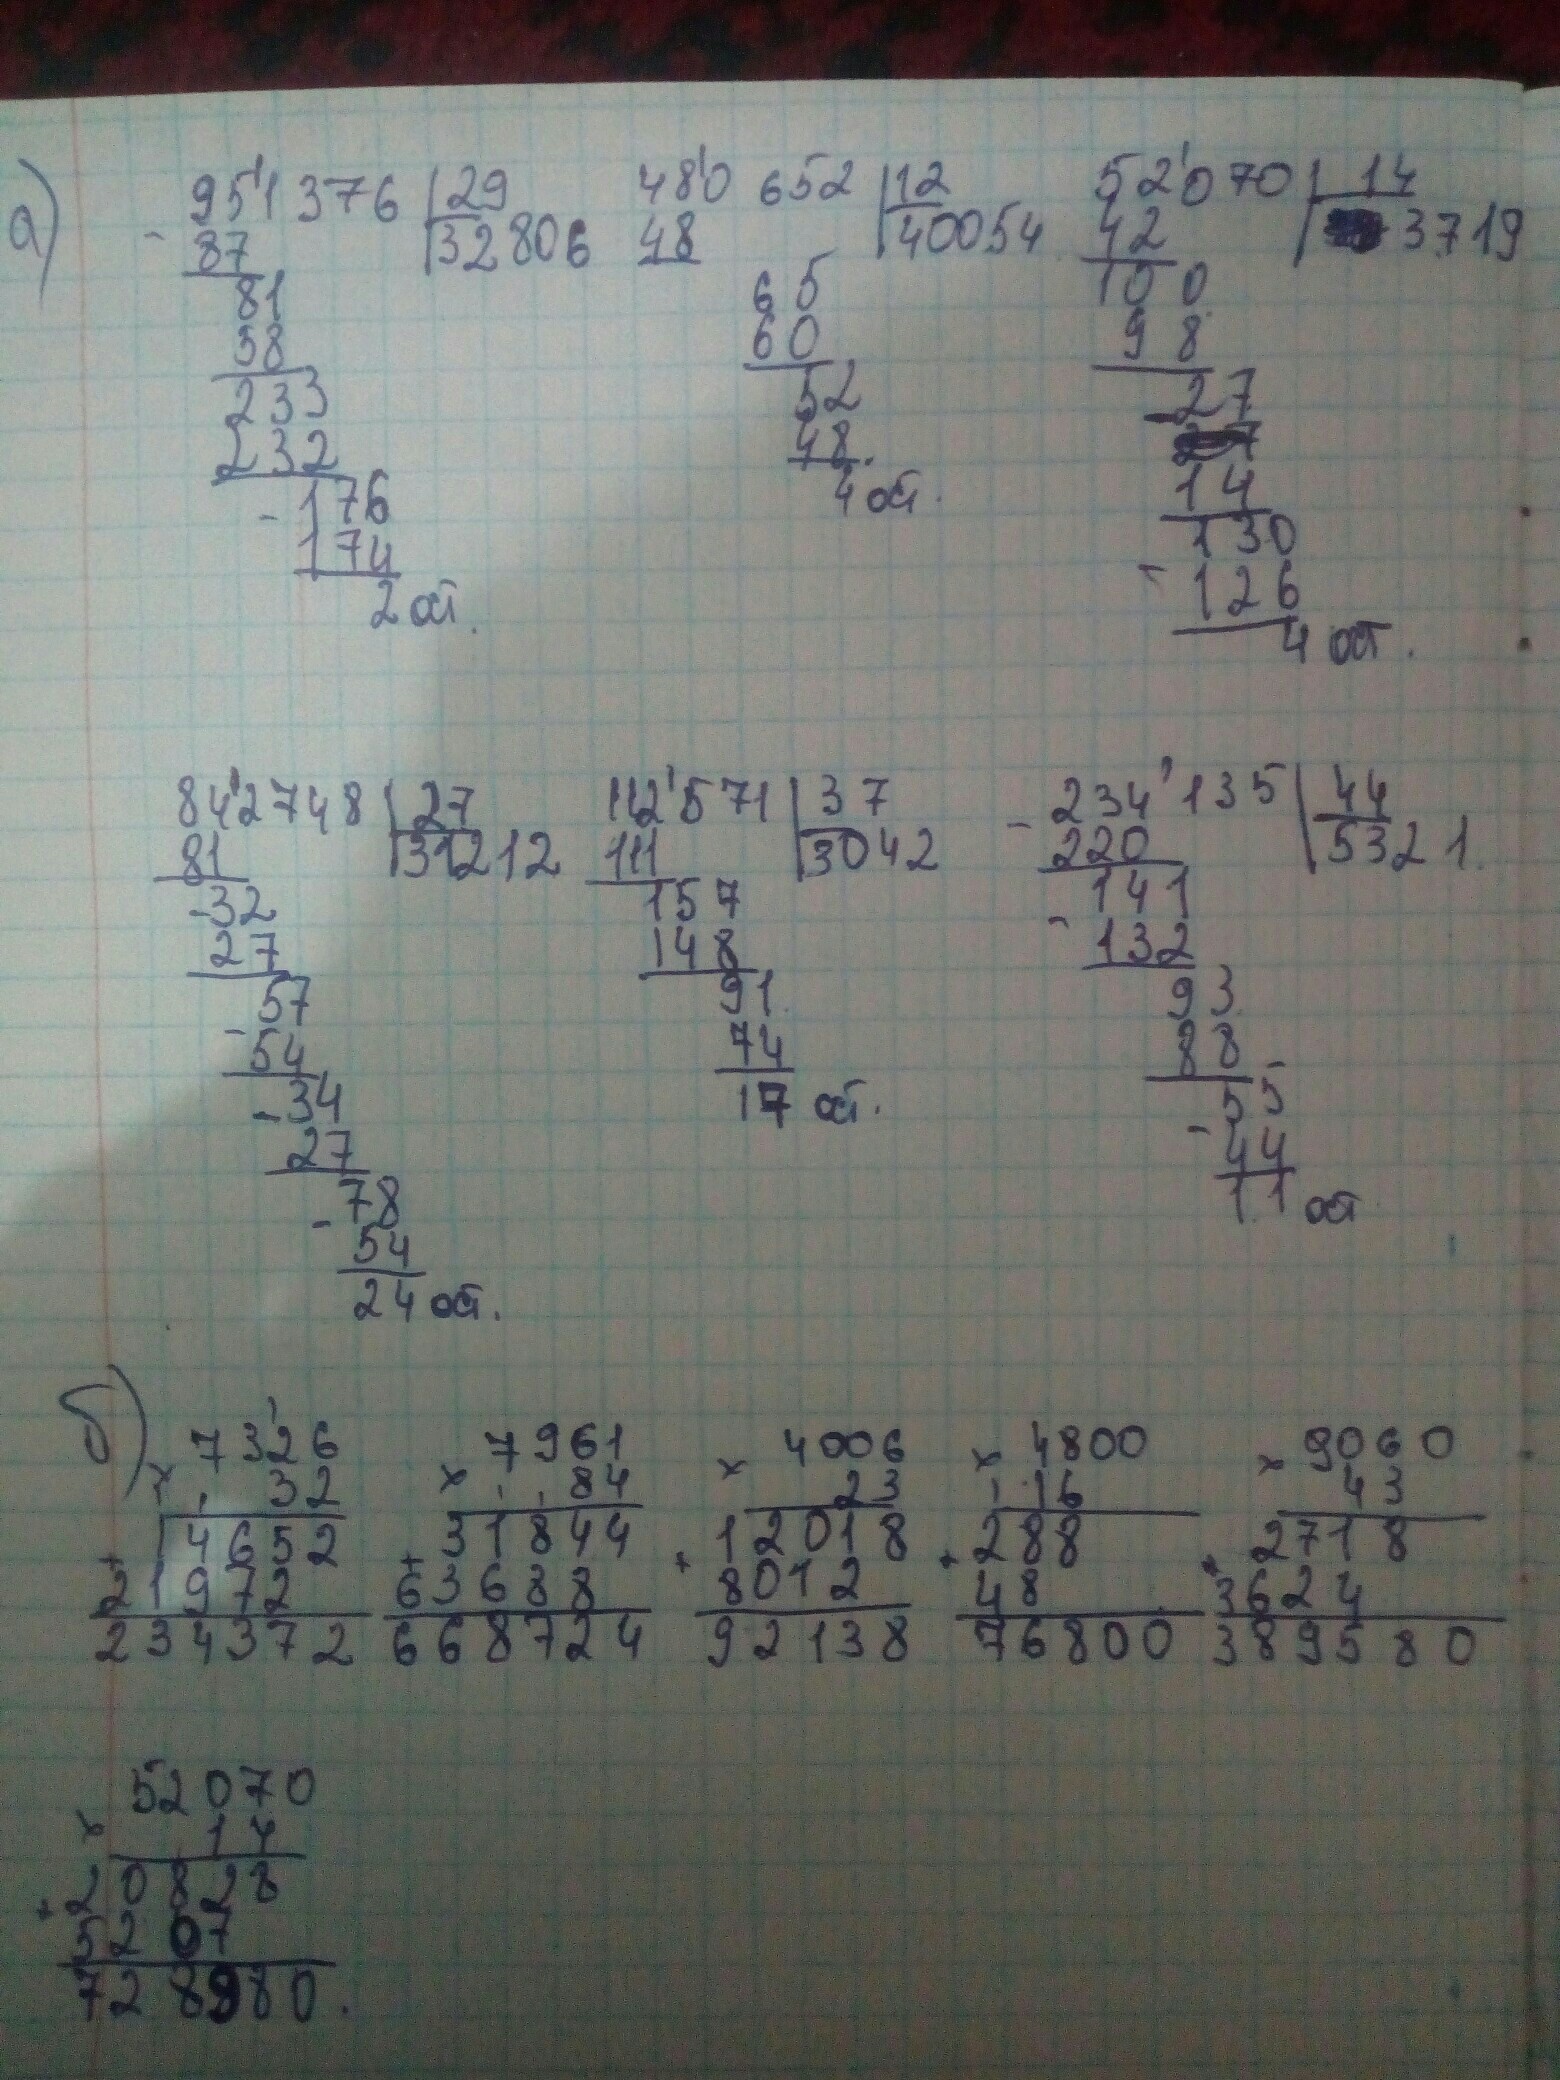 а)
951376 | 29
- 87 | 32806
81
58
233
232
- 176
174
2 ост.
480 652 | 12
48 | 40054
65
60
52
48
4 ост.
52070 | 14
42 | 3719
100
98
- 27
14
130
- 126
4 ост.
842748 | 27
81 | 31212
- 32
27
- 57
54
- 34
27
- 78
54
24 ост.
112571 | 37
111 | 3042
157
148
91
74
17 ост.
- 234135 | 44
220 | 5321.
141
- 132
93
88
55
- 44
11 ост
б)
7326
× 32
14652
+ 21972
234372
7961
× 84
31844
+ 63688
668724
4006
× 23
12018
+ 8012
92138
× 4800
16
288
+ 48
76800
× 9060
43
2718
+ 3624
389580
52070
× 14
20828
+ 5207
728980.